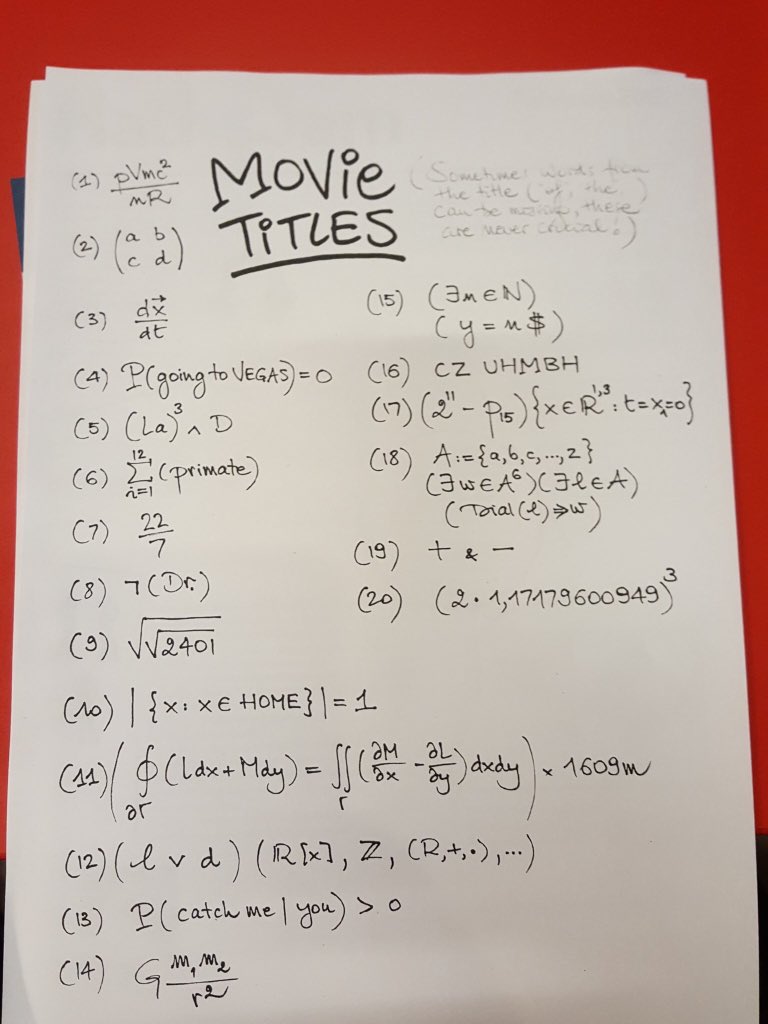 MOViE
TiTLES
(Sometimes words from
the title (of, the)
can be missing, these
are never crucial!)
(1) pVmc²/nR
(2) (a b
c d)
(3) dx⃗/dt
(4) P(going to VEGAS) = 0
(5) (La)³ ∧ D
(6) ∑_{i=1}^{12} (primate)
(7) 22/7
(8) ¬(Dr.)
(9) √√2401
(10) |{x: x ∈ HOME}| = 1
(11) (∮_{∂Γ} (Ldx+Mdy) = ∬_Γ (∂M/∂x - ∂L/∂y) dxdy) × 1609m
(12) (l ∨ d) (ℝ[x], ℤ, (R,+,·), ...)
(13) P(catch me | you) > 0
(14) G m₁m₂/r²
(15) (∃n∈ℕ)
(y = n$)
(16) CZ UHMBH
(17) (2¹¹ - p₁₅) {x∈ℝ^{1,3} : t=x₁=0}
(18) A:={a,b,c,...,z}
(∃w∈A⁶)(∃l∈A)
(Dial(l)⇒w)
(19) + & -
(20) (2 · 1,17179600949)³